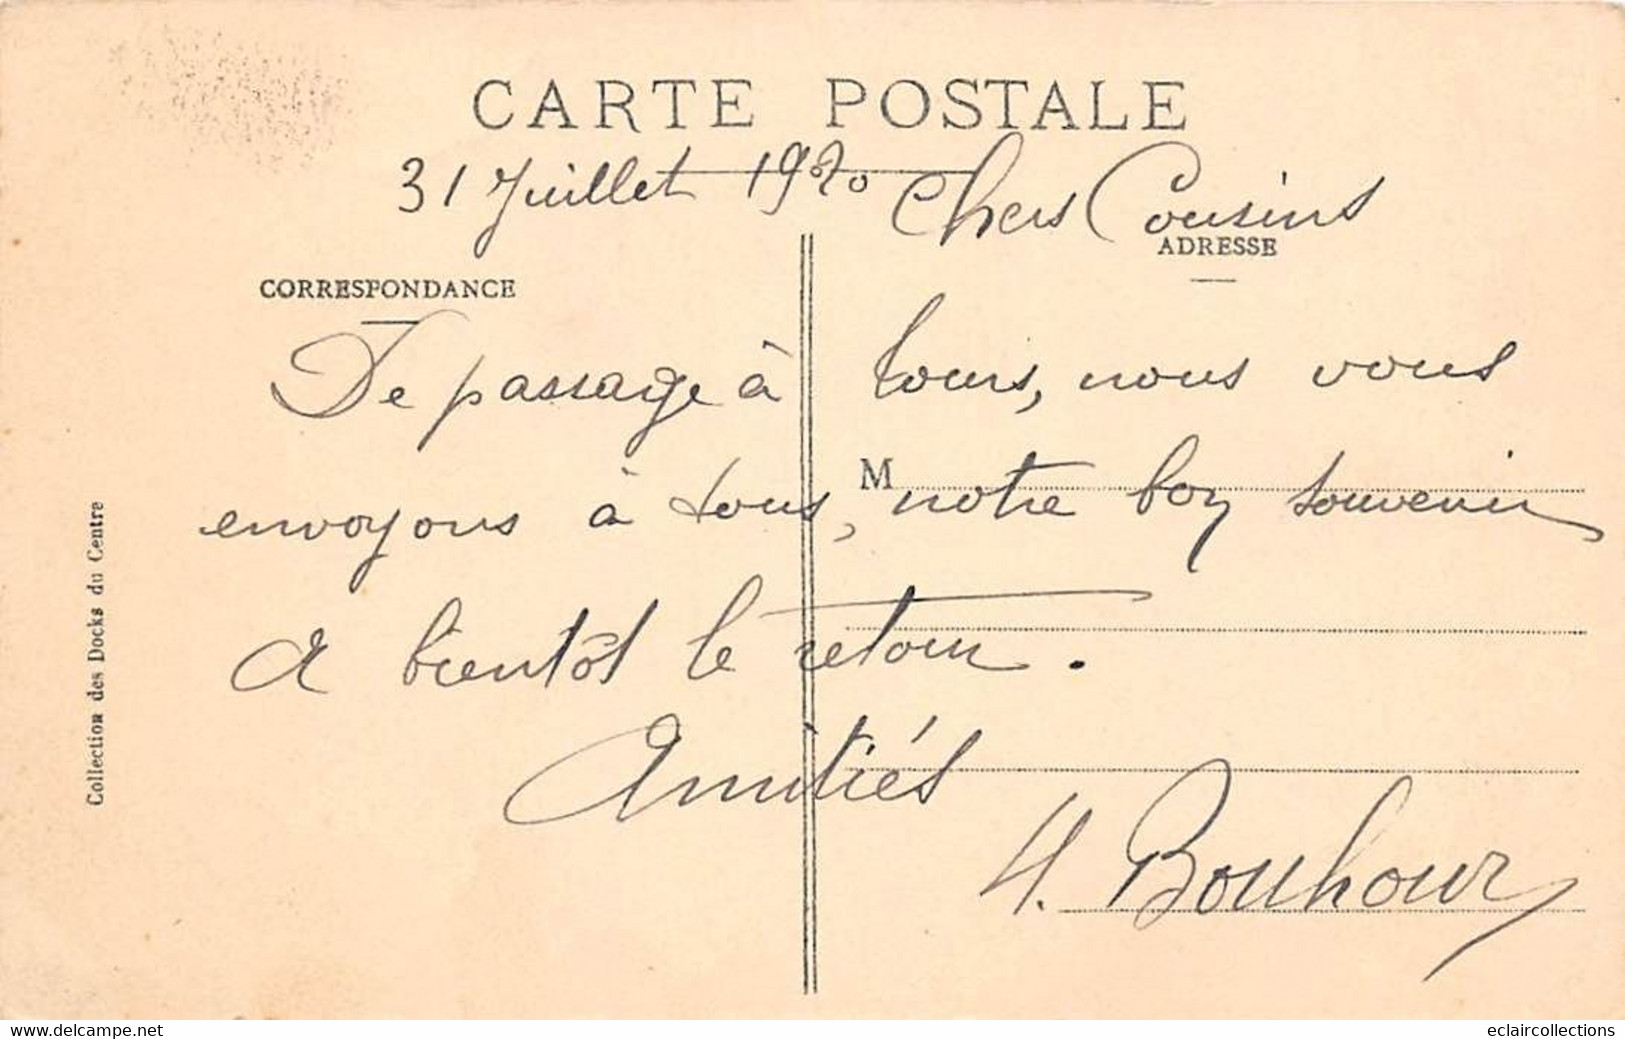 CARTE POSTALE
31 Juillet 1920 Chers Cousins
ADRESSE
CORRESPONDANCE
De passage à tours, nous vous
M
envoyons à tous, notre bon souvenir
A bientôt le retour.
Amitiés
H. Bouhour
Collection des Docks du Centre
www.delcampe.net
eclaircollections